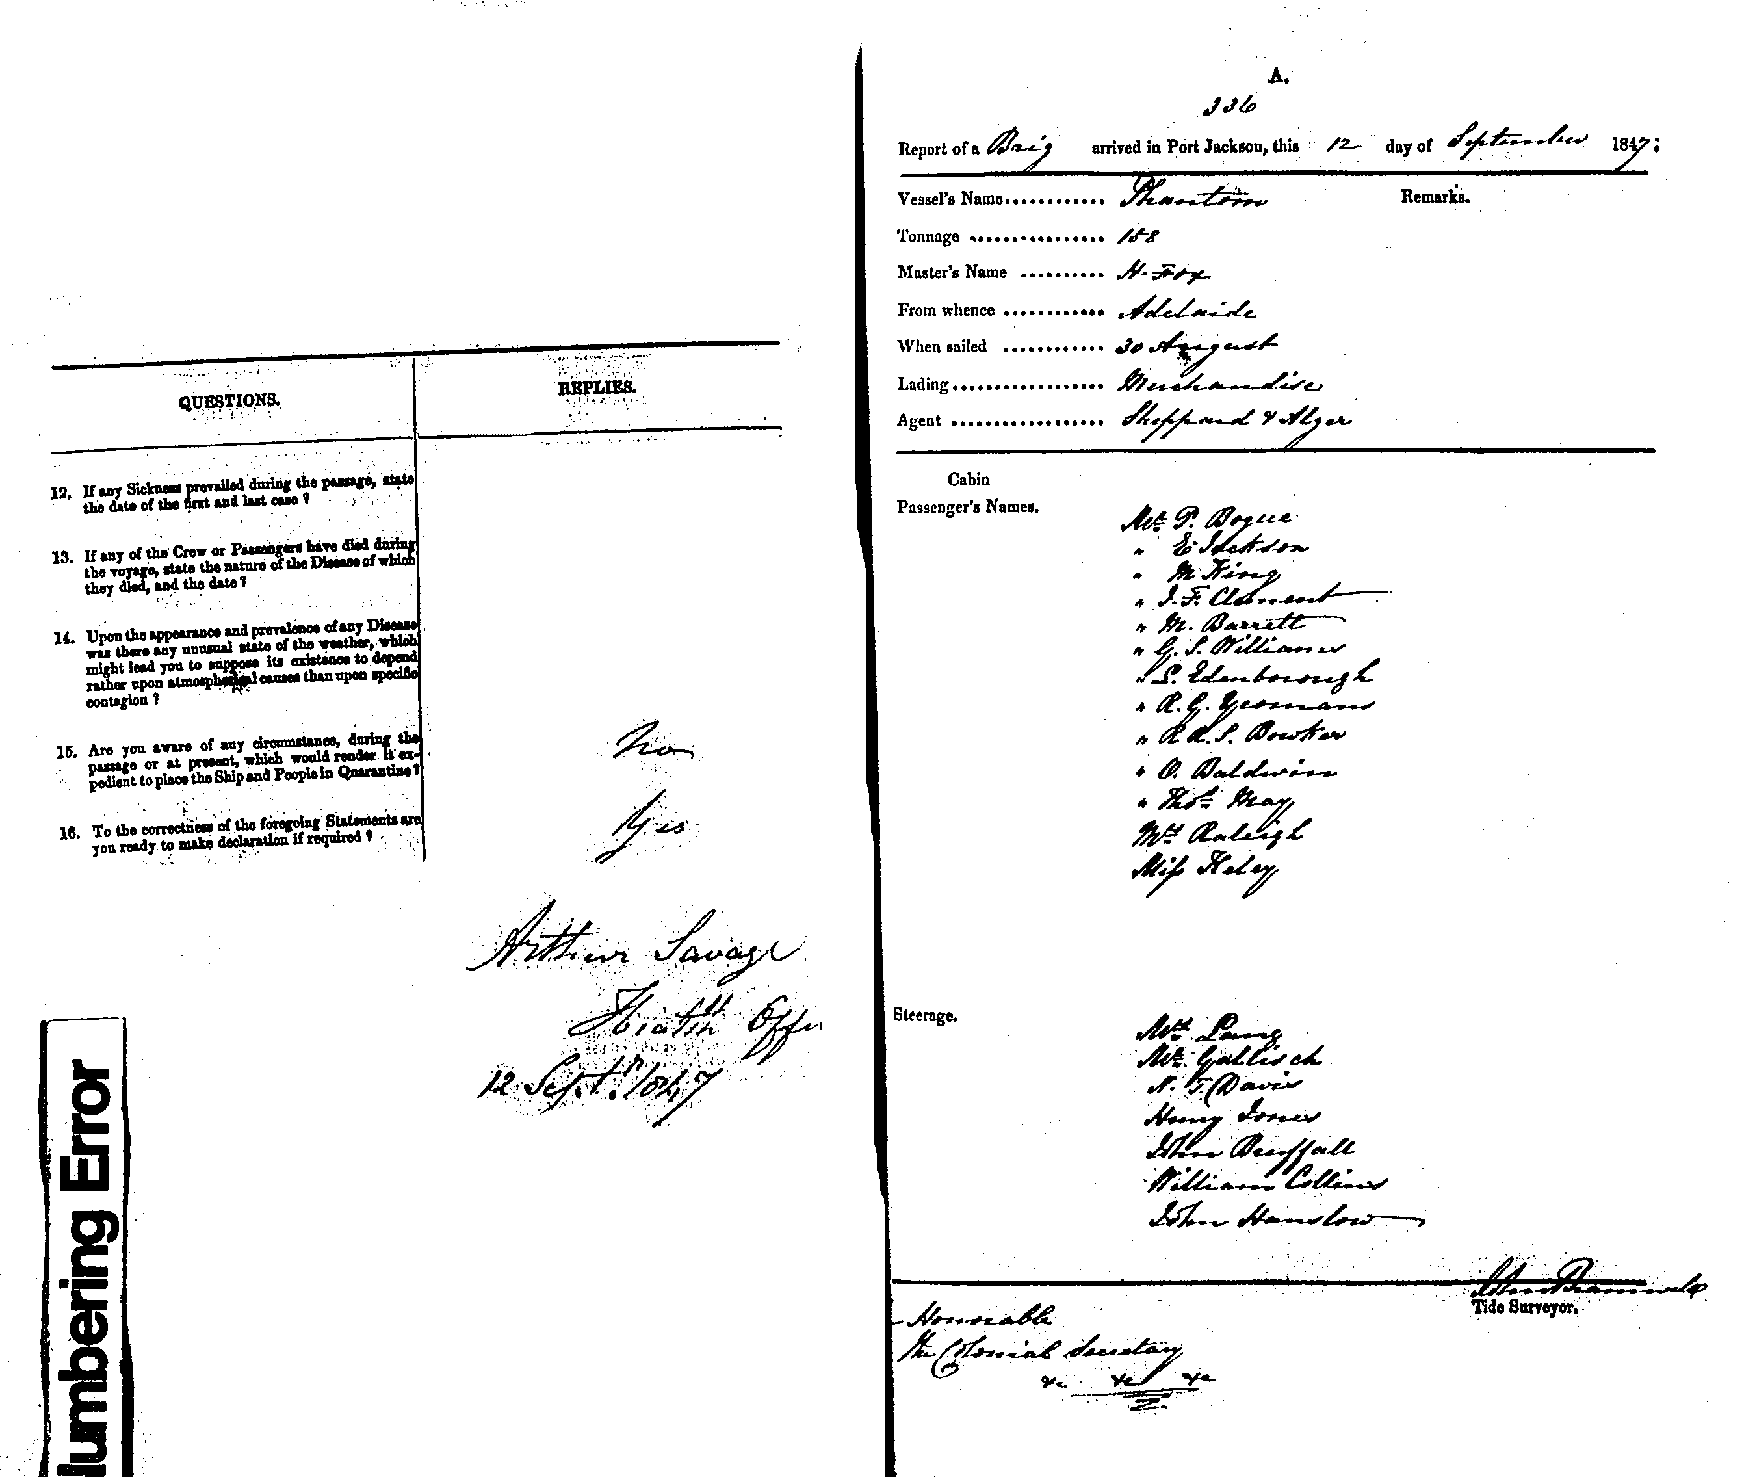 QUESTIONS.
REPLIES.
12. If any Sickness prevailed during the passage, state
the date of the first and last case ?
13. If any of the Crew or Passengers have died during
the voyage, state the nature of the Disease of which
they died, and the date ?
14. Upon the appearance and prevalence of any Disease
was there any unusual state of the weather, which
might lead you to suppose its existence to depend
rather upon atmospherical causes than upon specific
contagion ?
15. Are you aware of any circumstance, during the
passage or at present, which would render it ex-
pedient to place the Ship and People in Quarantine ?
No
16. To the correctness of the foregoing Statements are
you ready to make declaration if required ?
Yes
Arthur Savage
Health Offr
12 Septr. 1847
lumbering Error
A.
336
Report of a Brig arrived in Port Jackson, this 12 day of September 1847:
Vessel's Name............ Phantom
Remarks.
Tonnage ................ 158
Master's Name .......... H. Fox
From whence ............ Adelaide
When sailed ............ 30 August
Lading.................. Merchandise
Agent .................. Sheppard & Alger
Cabin
Passenger's Names.
Mr. P. Bogue
" E Jackson
" M King
" J. F. Clement
" M. Barrett
" G. S. Williams
" S. Edenborough
" R. G. Yeomans
" R R. S. Bowker
" O. Baldwin
" Thos. May
Mrs Raleigh
Miss Keley
Steerage.
Mrs Lang
Mr. Gallisch
N. T. Davis
Henry Jones
John Buffall
William Collins
John Hanslow
John Bramwell
Tide Surveyor.
Honorable
The Colonial Secretary
&c &c &c